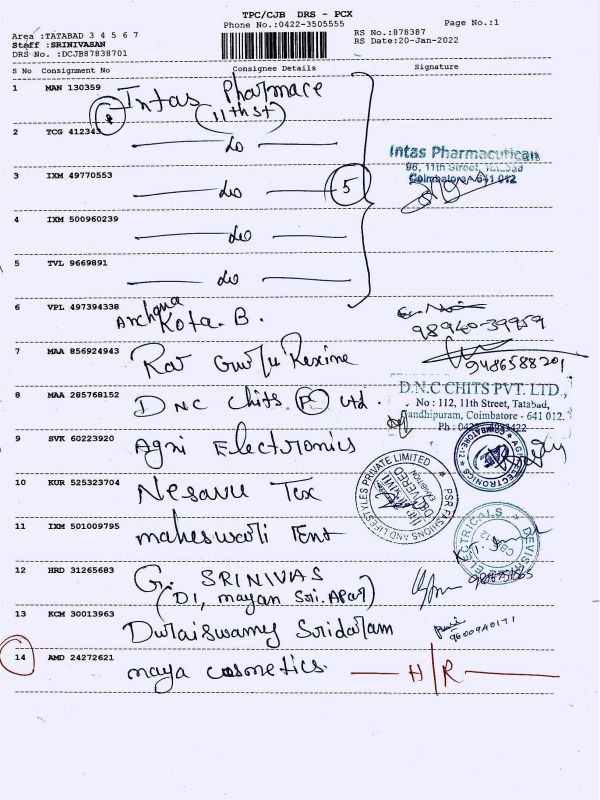 TPC/CJB DRS - PCX
Phone No.:0422-3505555
Page No.:1
Area :TATABAD 3 4 5 6 7
Staff :SRINIVASAN
DRS No. :DCJB87838701
RS No.:878387
RS Date:20-Jan-2022
S No Consignment No Consignee Details Signature
1 MAN 130359 Intas Pharmace
(11th st)
2 TCG 412343 do
3 IXM 49770553 do 5
4 IXM 500960239 do
5 TVL 9669891 do
Intas Pharmacuticals
96, 11th Street, Tatabad
Coimbatore-641 012
6 VPL 497394338 Archana Kota. B.
98940-39959
7 MAA 856924943
9486588201
8 MAA 285768152 DNC chits (P) Ltd.
D.N.C CHITS PVT. LTD.,
No : 112, 11th Street, Tatabad,
Gandhipuram, Coimbatore - 641 012.
9 SVK 60223920 Agni Electronics
10 KUR 525323704 Nesavu Tex
PSR FASIONS AND LIFESTYLES PRIVATE LIMITED
11 IXM 501009795 maheswari Tent
12 HRD 31265683 G. SRINIVAS
(D1, mayan Sri. Apart)
13 KCM 30013963 Duraiswamy Sridaram
14 AMD 24272621 maya cosmetics. H/R